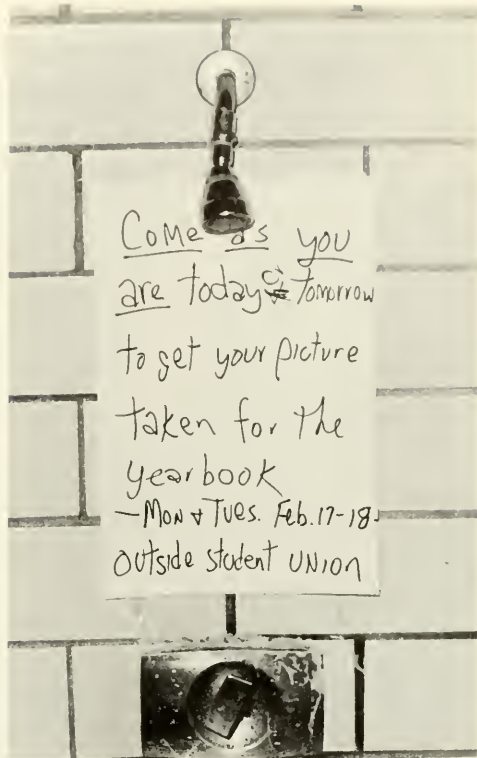 Come as you
are today & tomorrow
to get your picture
taken for the
yearbook
—Mon + Tues. Feb. 17-18
outside student union